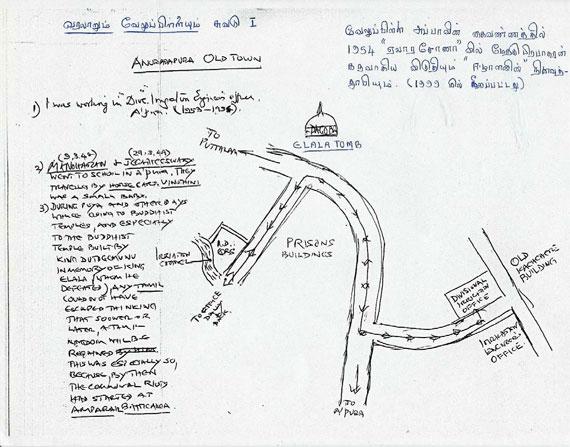 வரலாறும் வேலுப்பிள்ளையும் சுவடு I
வேலுப்பிள்ளை அப்பாவின் கைவண்ணத்தில்
1954 "எலார சோனா" வில்
விடுதியும்
(1999 இல்
ANURADAPURA OLD TOWN
1) I was working in "Divl. Irrigation Engineer's office,
A'pura. (1953-195
(9.3.42) (29.3.49)
2) MANOHARAN & JEGATHEESWARY
WENT TO SCHOOL IN A'PURA, THEY
TRAVELLED BY HORSE CART. VINOTHINI
WAS A SMALL BABY.
3) DURING POYA AND OTHER DAYS
WHILE GOING TO BUDDHIST
TEMPLES, AND ESPECIALLY
TO THE BUDDHIST
TEMPLE BUILT BY
KING DUTUGEMUNU
IN MEMORY OF KING
ELALA (WHOM HE
DEFEATED), ANY TAMIL
COULD NOT HAVE
ESCAPED THINKING
THAT SOONER OR
LATER, A TAMIL
KINGDOM WILL BE
REGAINED
THIS WAS ESPECIALLY SO,
BECAUSE, BY THEN
THE COMMUNAL RIOTS
HAD STARTED AT
AMPARAI, BATTICALOA
TO
PUTTALAM
DAGOBA
ELALA TOMB
IRRIGATION
CHANNEL
QRS
PRISONS
BUILDINGS
TO
DIVISIONAL
IRRIGATION
OFFICE
OLD
KACHCHERI
BUILDING
IRRIGATION
ENGINEER'S
OFFICE.
TO
A'PURA